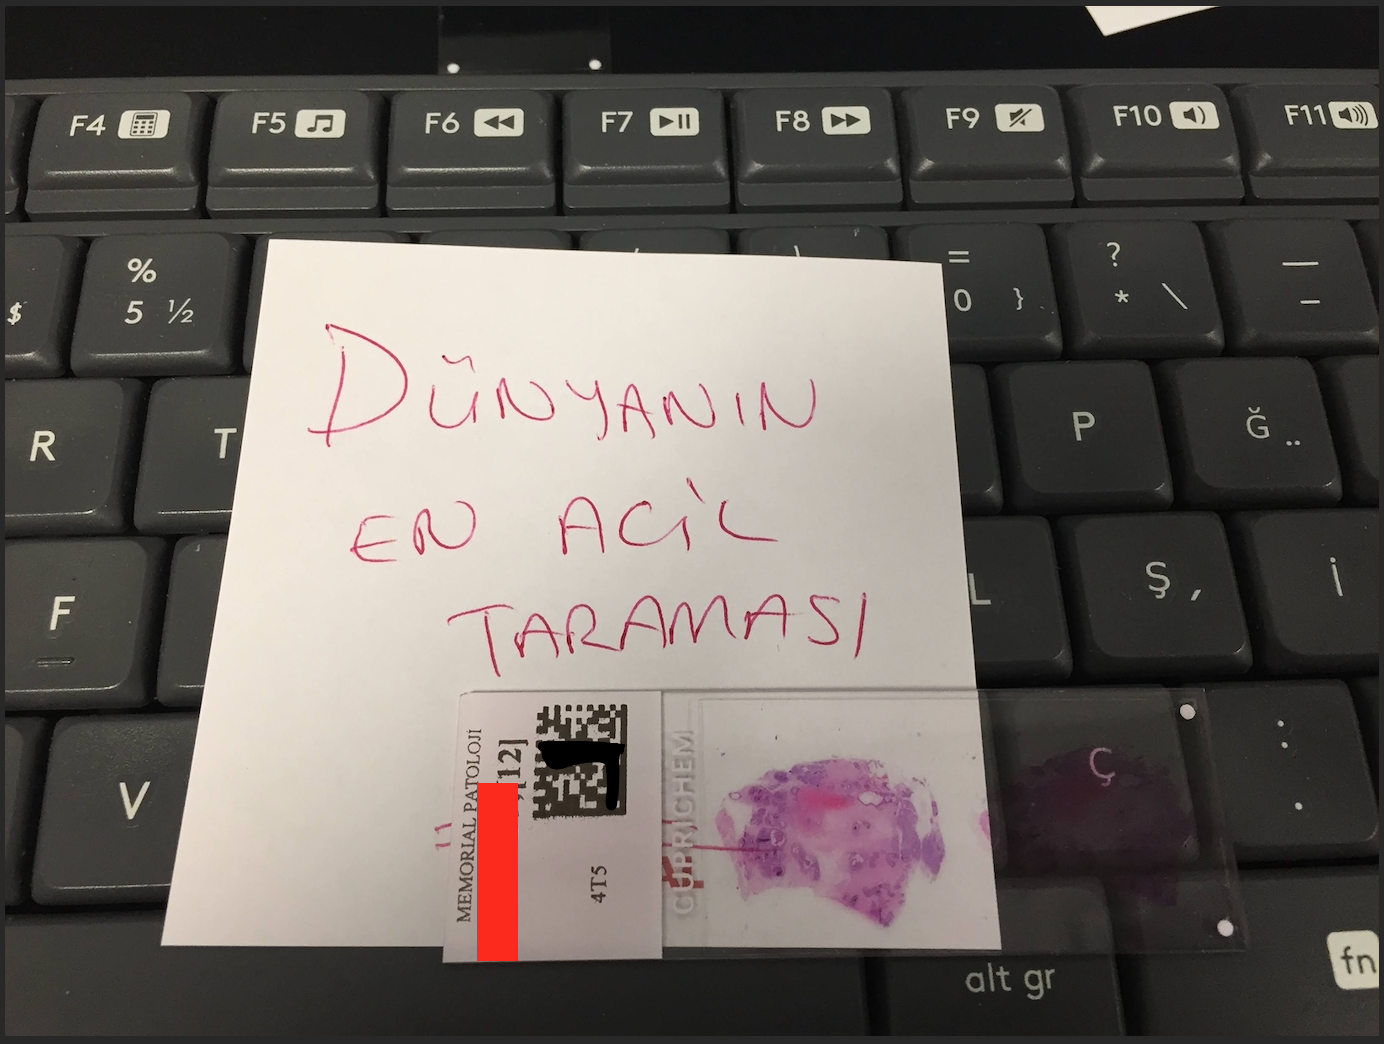 F4 F5 F6 F7 F8 F9 F10 F11
$ % 5 ½ = 0 } ? * \ — -
R T P Ğ ¨
F L Ş , İ
V Ç : .
alt gr fn
DÜNYANIN
EN ACİL
TARAMASI
MEMORIAL PATOLOJİ
[12]
4T5
CUPRICHEM